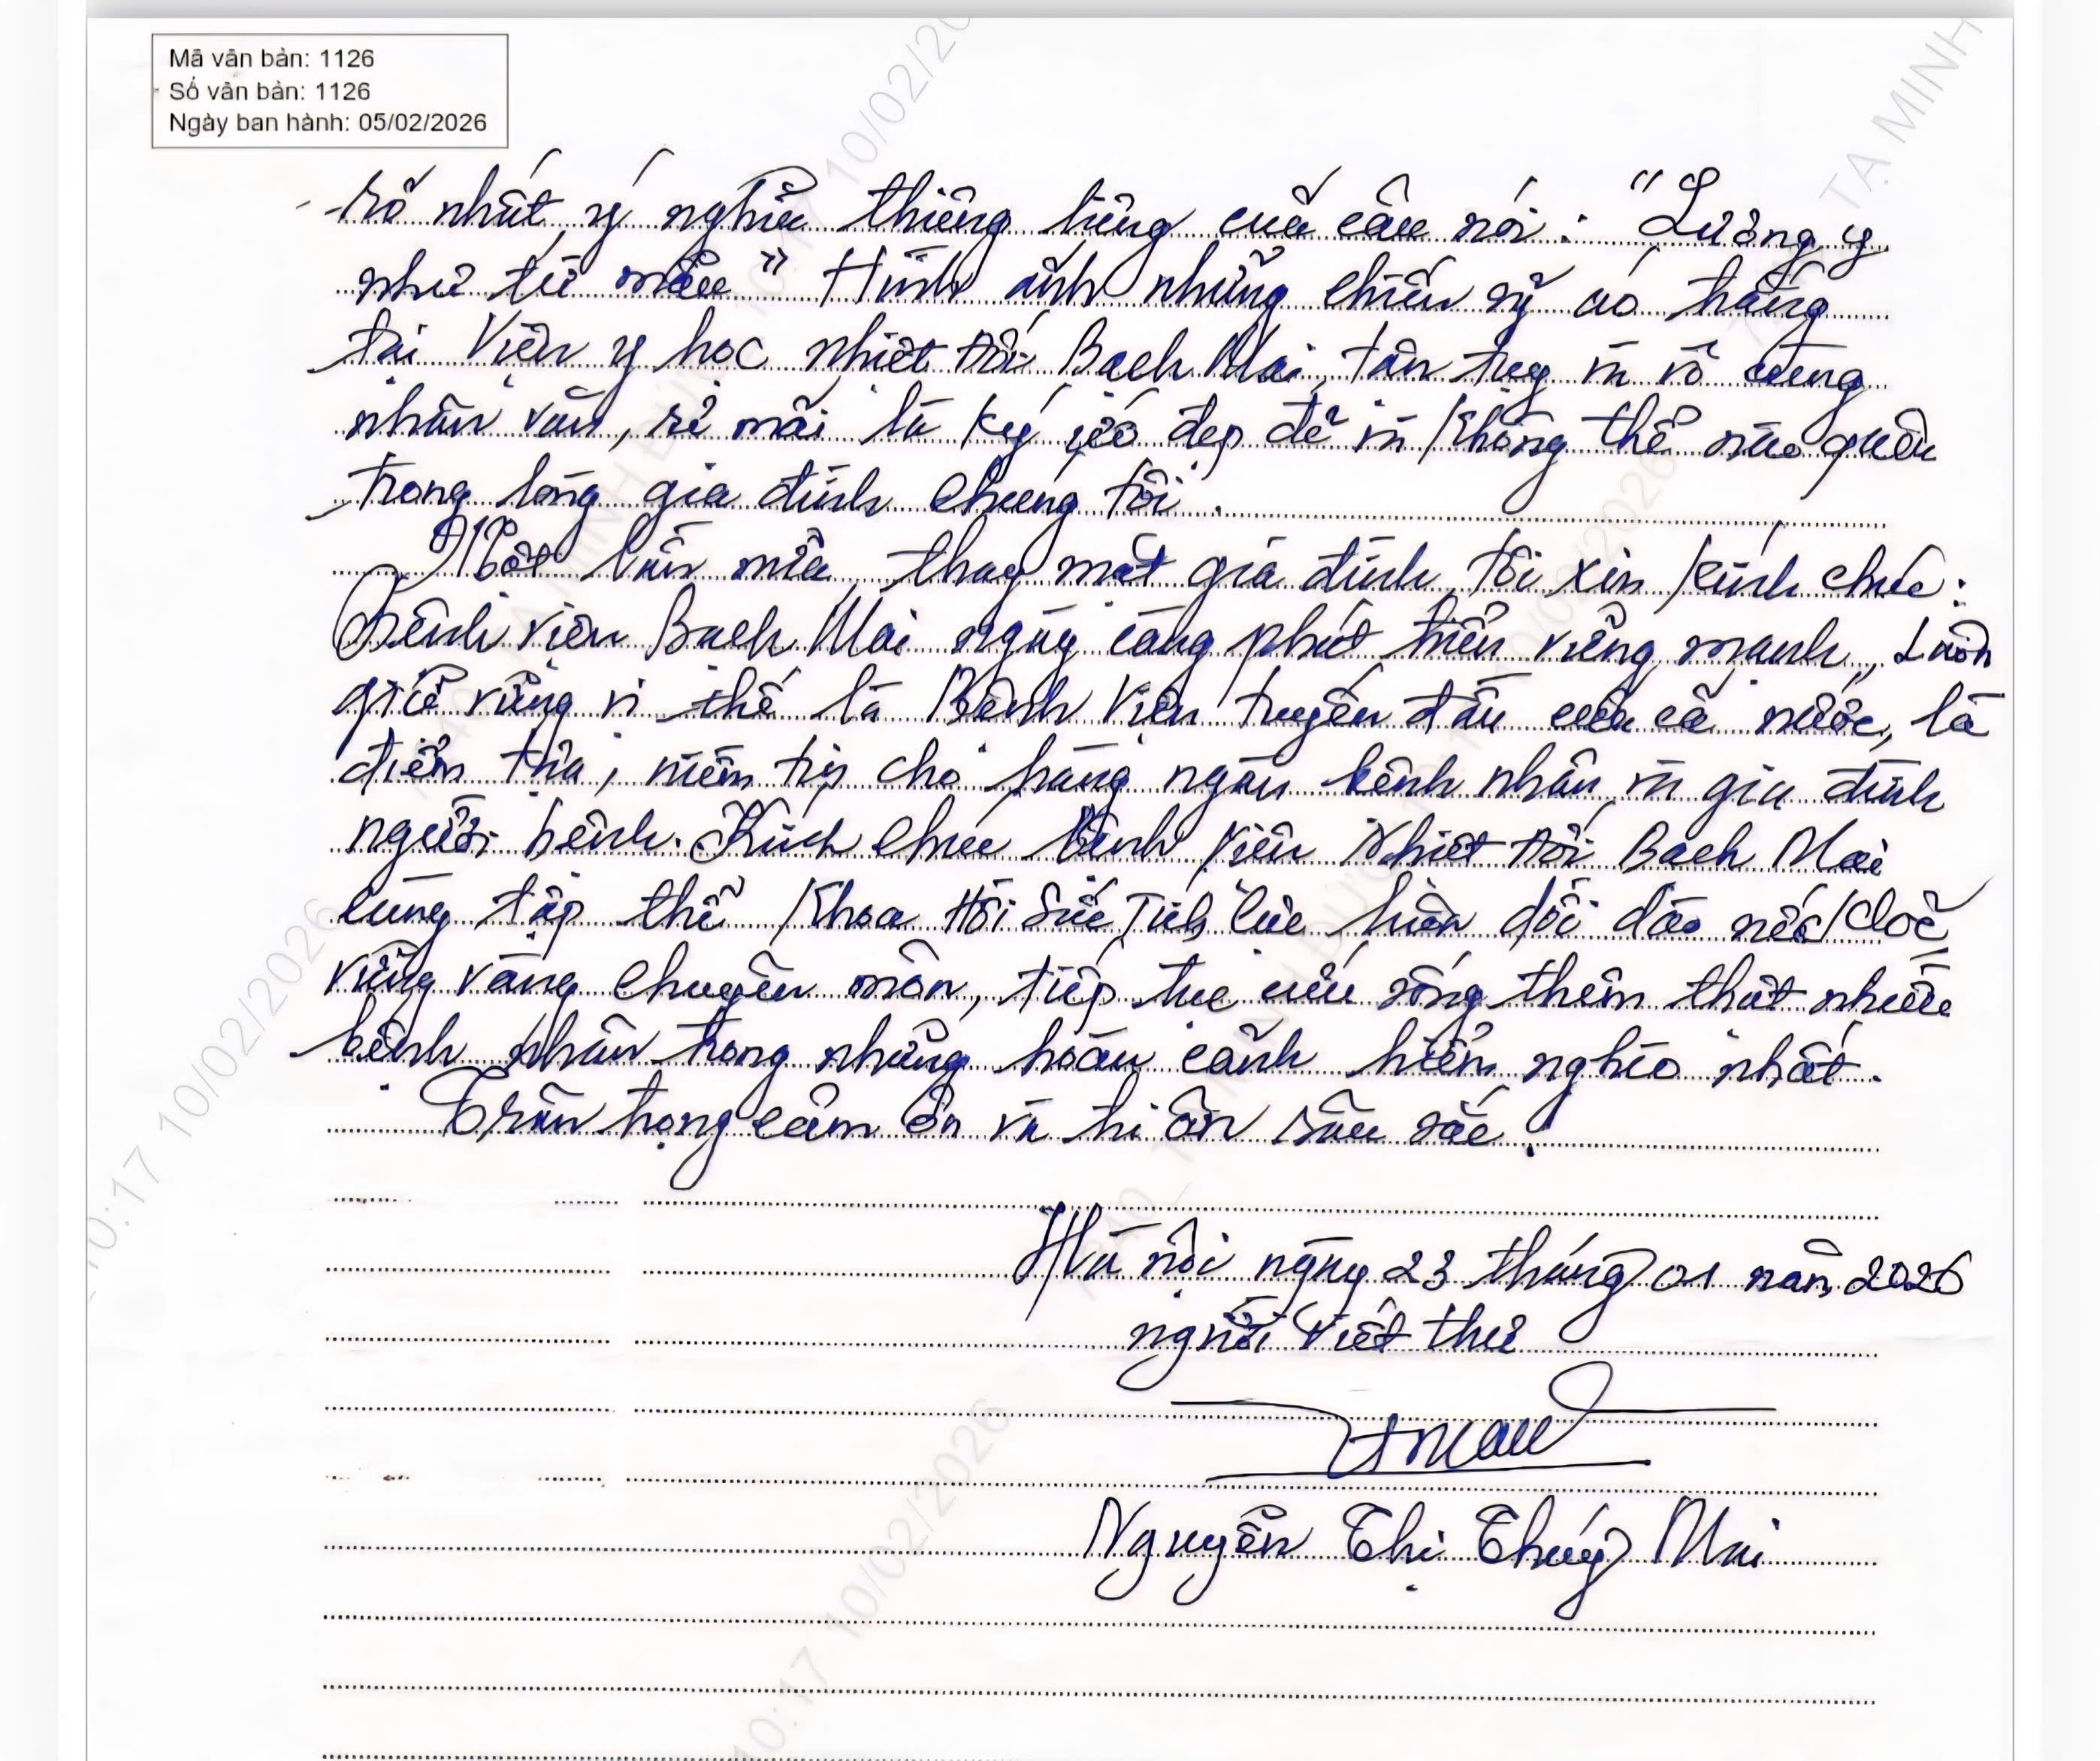 Mã văn bản: 1126
Số văn bản: 1126
Ngày ban hành: 05/02/2026
rõ nhất ý nghĩa thiêng liêng của câu nói: "Lương y
như từ mẫu" Hình ảnh những chiến sỹ áo trắng
tại Viện y học nhiệt đới Bạch Mai, tận tụy và vô cùng
nhân văn, sẽ mãi là ký ức đẹp đẽ và không thể nào quên
trong lòng gia đình chúng tôi.
Một lần nữa, thay mặt gia đình, tôi xin kính chúc:
Bệnh viện Bạch Mai ngày càng phát triển vững mạnh, Luôn
giữ vững vị thế là Bệnh Viện tuyến đầu của cả nước, là
điểm tựa, niềm tin cho hàng ngàn bệnh nhân và gia đình
người bệnh. Kính chúc bệnh viện Nhiệt đới Bạch Mai
cùng tập thể Khoa Hồi Sức Tích cực luôn dồi dào sức khoẻ
vững vàng chuyên môn, tiếp tục cứu sống thêm thật nhiều
bệnh nhân trong những hoàn cảnh hiểm nghèo nhất.
Trân trọng cảm ơn và tri ân sâu sắc.
Hà nội ngày 23 tháng 01 năm 2026
người viết thư
Nguyễn Thị Thúy Mai
10:17 10/02/2026
TẠ MINH